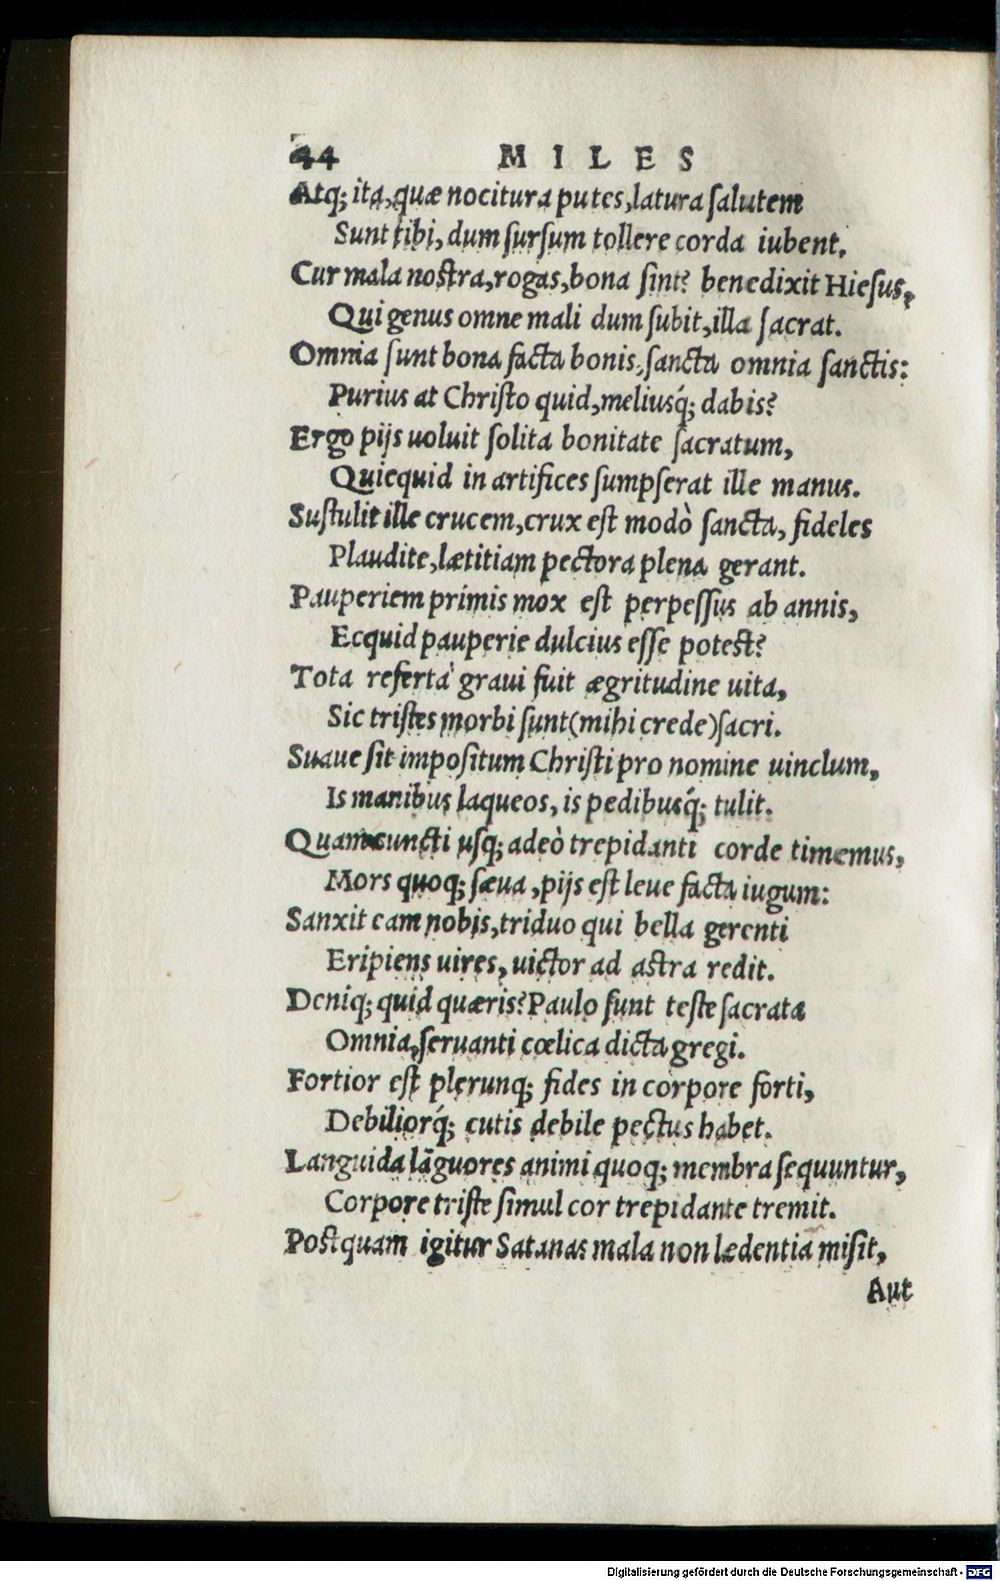 44 MILES
Atq; ita, quæ nocitura putes, latura ſalutem
Sunt tibi, dum ſurſum tollere corda iubent.
Cur mala noſtra, rogas, bona ſint? benedixit Hieſus,
Qui genus omne mali dum ſubit, illa ſacrat.
Omnia ſunt bona facta bonis, ſancta omnia ſanctis:
Purius at Chriſto quid, meliusq́; dabis?
Ergo pijs uoluit ſolita bonitate ſacratum,
Quicquid in artifices ſumpſerat ille manus.
Suſtulit ille crucem, crux eſt modò ſancta, fideles
Plaudite, lætitiam pectora plena gerant.
Pauperiem primis mox eſt perpeſſus ab annis,
Ecquid pauperie dulcius eſſe poteſt?
Tota referta graui fuit ægritudine uita,
Sic triſtes morbi ſunt (mihi crede) ſacri.
Suaue ſit impoſitum Chriſti pro nomine uinclum,
Is manibus laqueos, is pedibusq́; tulit.
Quam cuncti uſq; adeò trepidanti corde timemus,
Mors quoq; ſæua, pijs eſt leue facta iugum:
Sanxit eam nobis, triduo qui bella gerenti
Eripiens uires, uictor ad aſtra redit.
Deniq; quid quæris? Paulo ſunt teſte ſacrata
Omnia, ſeruanti cœlica dicta gregi.
Fortior eſt plerunq; fides in corpore forti,
Debiliorq́; cutis debile pectus habet.
Languida lāguores animi quoq; membra ſequuntur,
Corpore triſte ſimul cor trepidante tremit.
Poſtquam igitur Satanas mala non lædentia miſit,
Aut
Digitalisierung gefördert durch die Deutsche Forschungsgemeinschaft - DFG